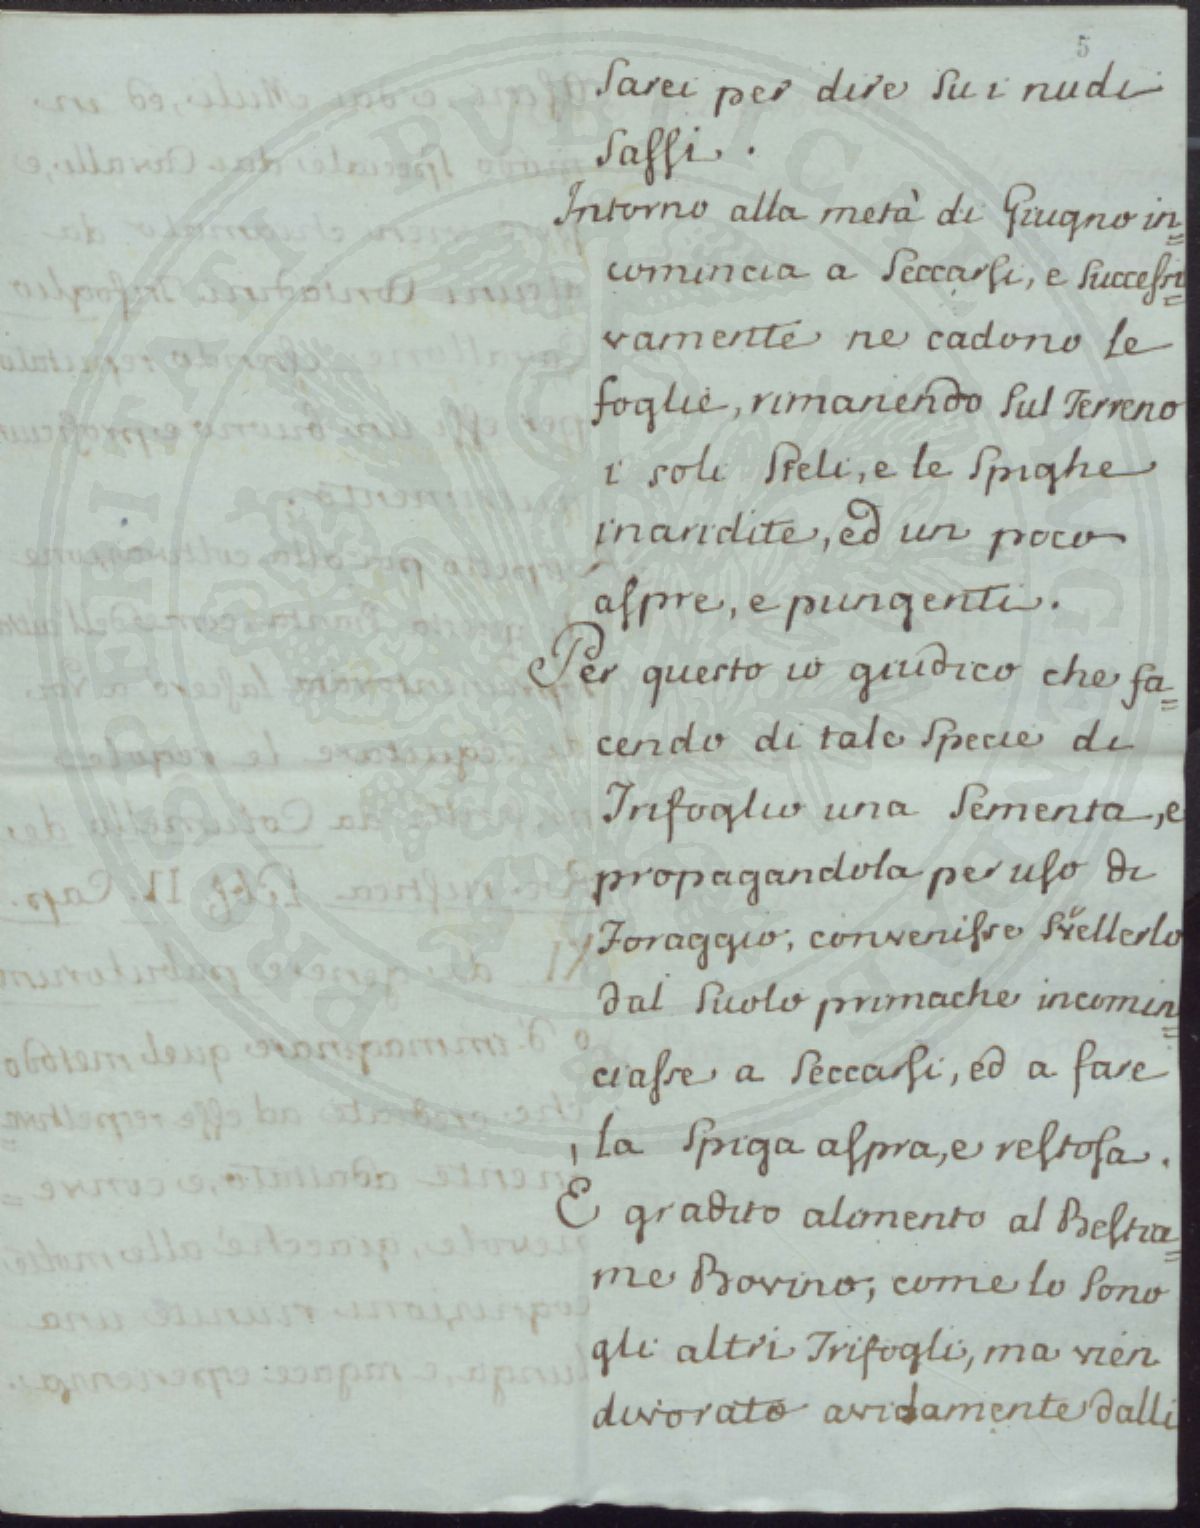 5
Sarei per dire su i nudi
Sassi.
Intorno alla metà di Giugno in=
comincia a Seccarsi, e successi=
vamente ne cadono le
foglie, rimanendo sul Terreno
i soli Steli, e le Spighe
inaridite, ed un poco
aspre, e pungenti.
Per questo io giudico che fa=
cendo di tale Specie di
Trifoglio una Sementa, e
propagandola per uso di
Foraggio, convenisse Svellerlo
dal Suolo primache incomin=
ciasse a Seccarsi, ed a fare
la Spiga aspra, e restosa.
E gradito alimento al Bestia=
me Bovino, come lo sono
gli altri Trifogli, ma vien
divorato avidamente dalli
PROSPERITATI PUBLICAE AUGENDAE